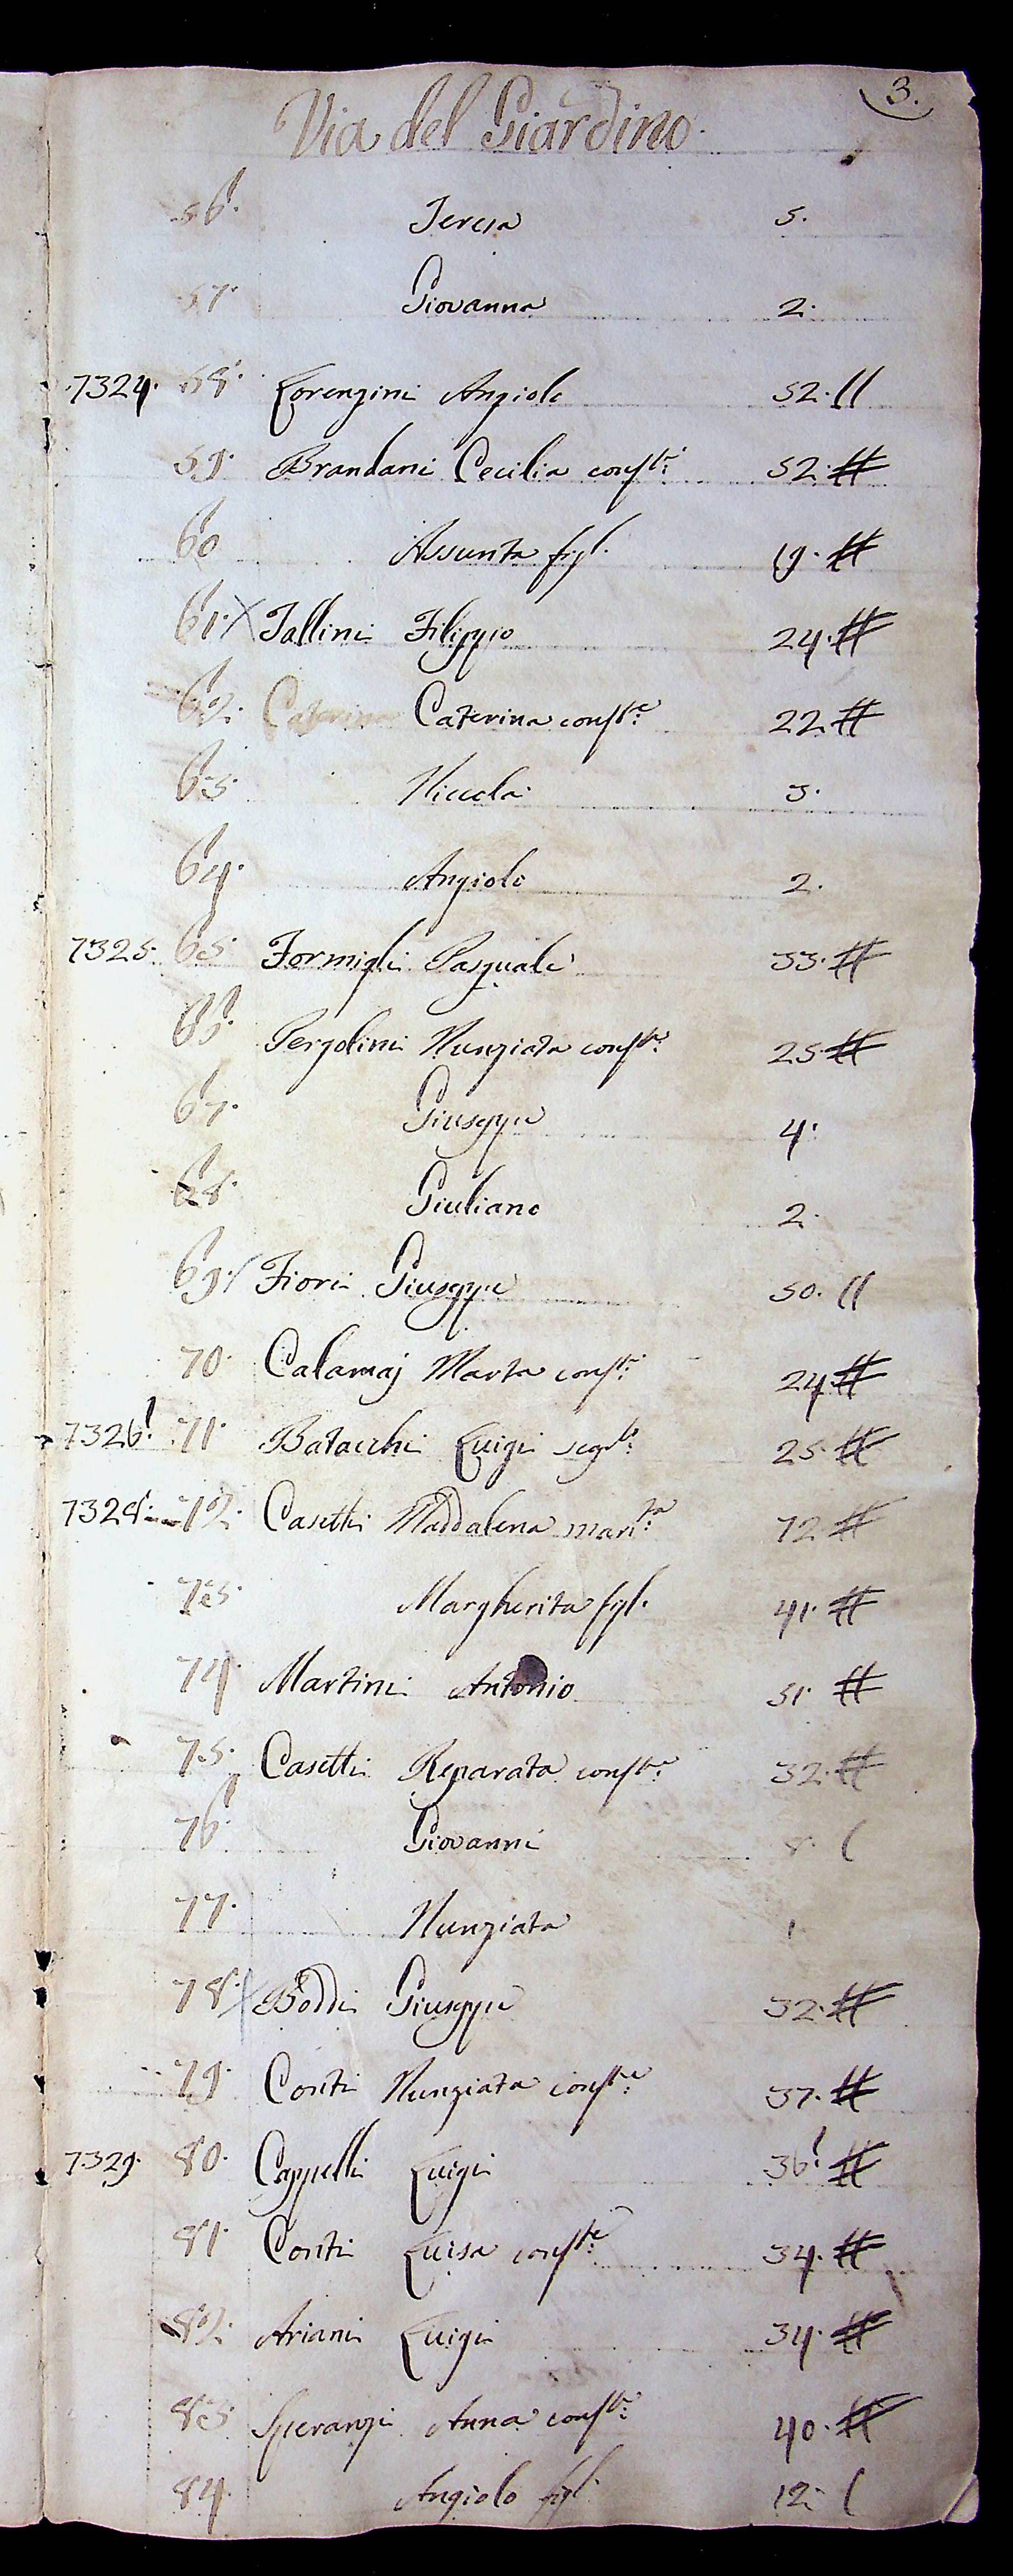 3.
Via del Giardino.
56. Teresa 5.
57. Giovanna 2.
7324. 58. Lorenzini Angiolo 52. //
59. Brandani Cecilia conste: 52. #
60 Assunta figl. 19. #
61. X Tallini Filippo 24. #
62. Caterina Caterina conste: 22. #
63. Niccola 3.
64. Angiolo 2.
7325. 65. Formigli Pasquale 33. #
66. Pergolini Nunziata conste: 25 #
67. Giuseppe 4.
68. Giuliano 2.
69. / Fiori Giuseppe 50. //
70. Calamaj Marta conste: 24 #
7326. 71. Batacchi Luigi seple: 25 #
7328. 72. Casetti Maddalena marta: 72 #
73. Margherita figl. 41. #
74 Martini Antonio 51 #
75. Casetti Reparata conste: 32. #
76. Giovanni 8. (
77. Nunziata 1
78. X Boddi Giuseppe 32. #
79. Conti Nunziata conste: 37. #
7329. 80. Cappelli Luigi 36. #
81. Conti Luisa conste: 34. #
82. Ariani Luigi 34. #
83 Speranzi Anna conste: 40. #
84. Angiolo figl. 12. (